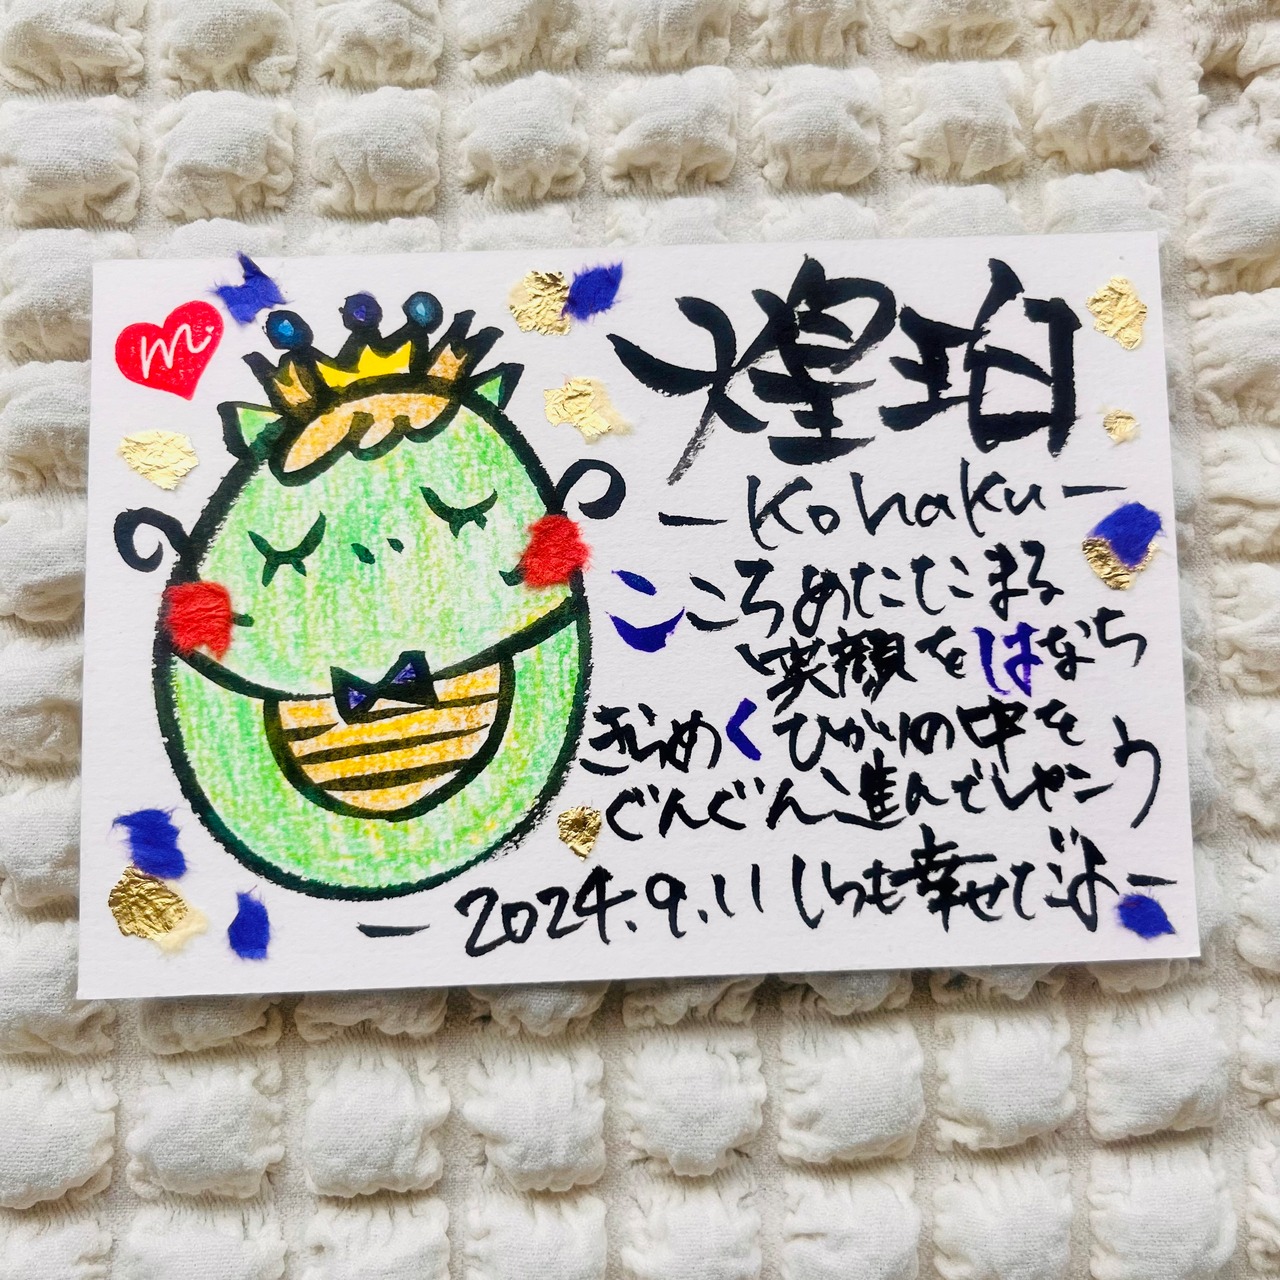 m.
煌珀
- Kohaku -
こころあたたまる
笑顔をはなち
きらめくひかりの中を
ぐんぐん進んでしゃこう
- 2024.9.11 いつも幸せだよ -